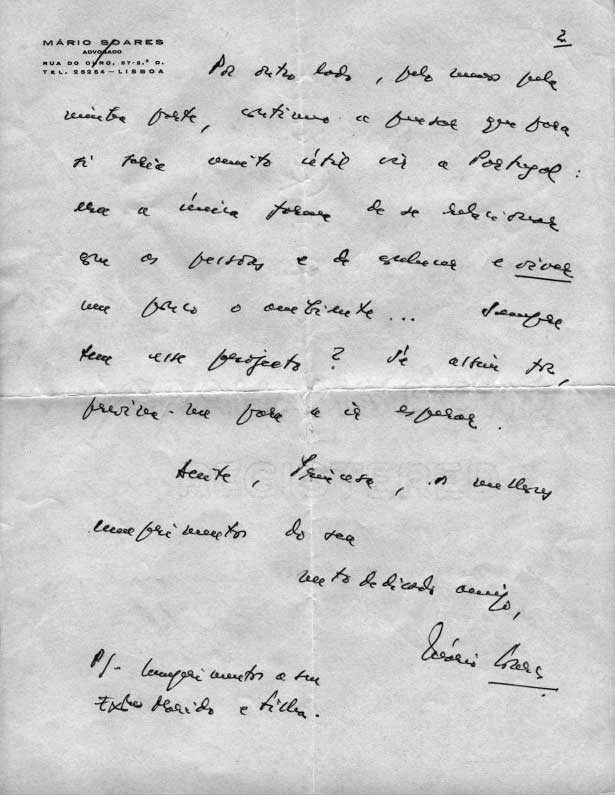 MÁRIO SOARES
ADVOGADO
RUA DO OURO, 87-2.º D.
TEL. 26254 — LISBOA
2
Por outro lado, pelo menos pela
minha parte, continuo a pensar que para
si seria muito útil vir a Portugal:
era a única forma de se relacionar
com as pessoas e de conhecer e viver
um pouco o ambiente... Sempre
tem esse projecto? Se assim for,
previna-me para a ir esperar.
Aceite, Princesa, os melhores
cumprimentos do seu
muito dedicado amigo,
Mário Soares
P/- Cumprimentos a seu
Exmo Marido e filha.